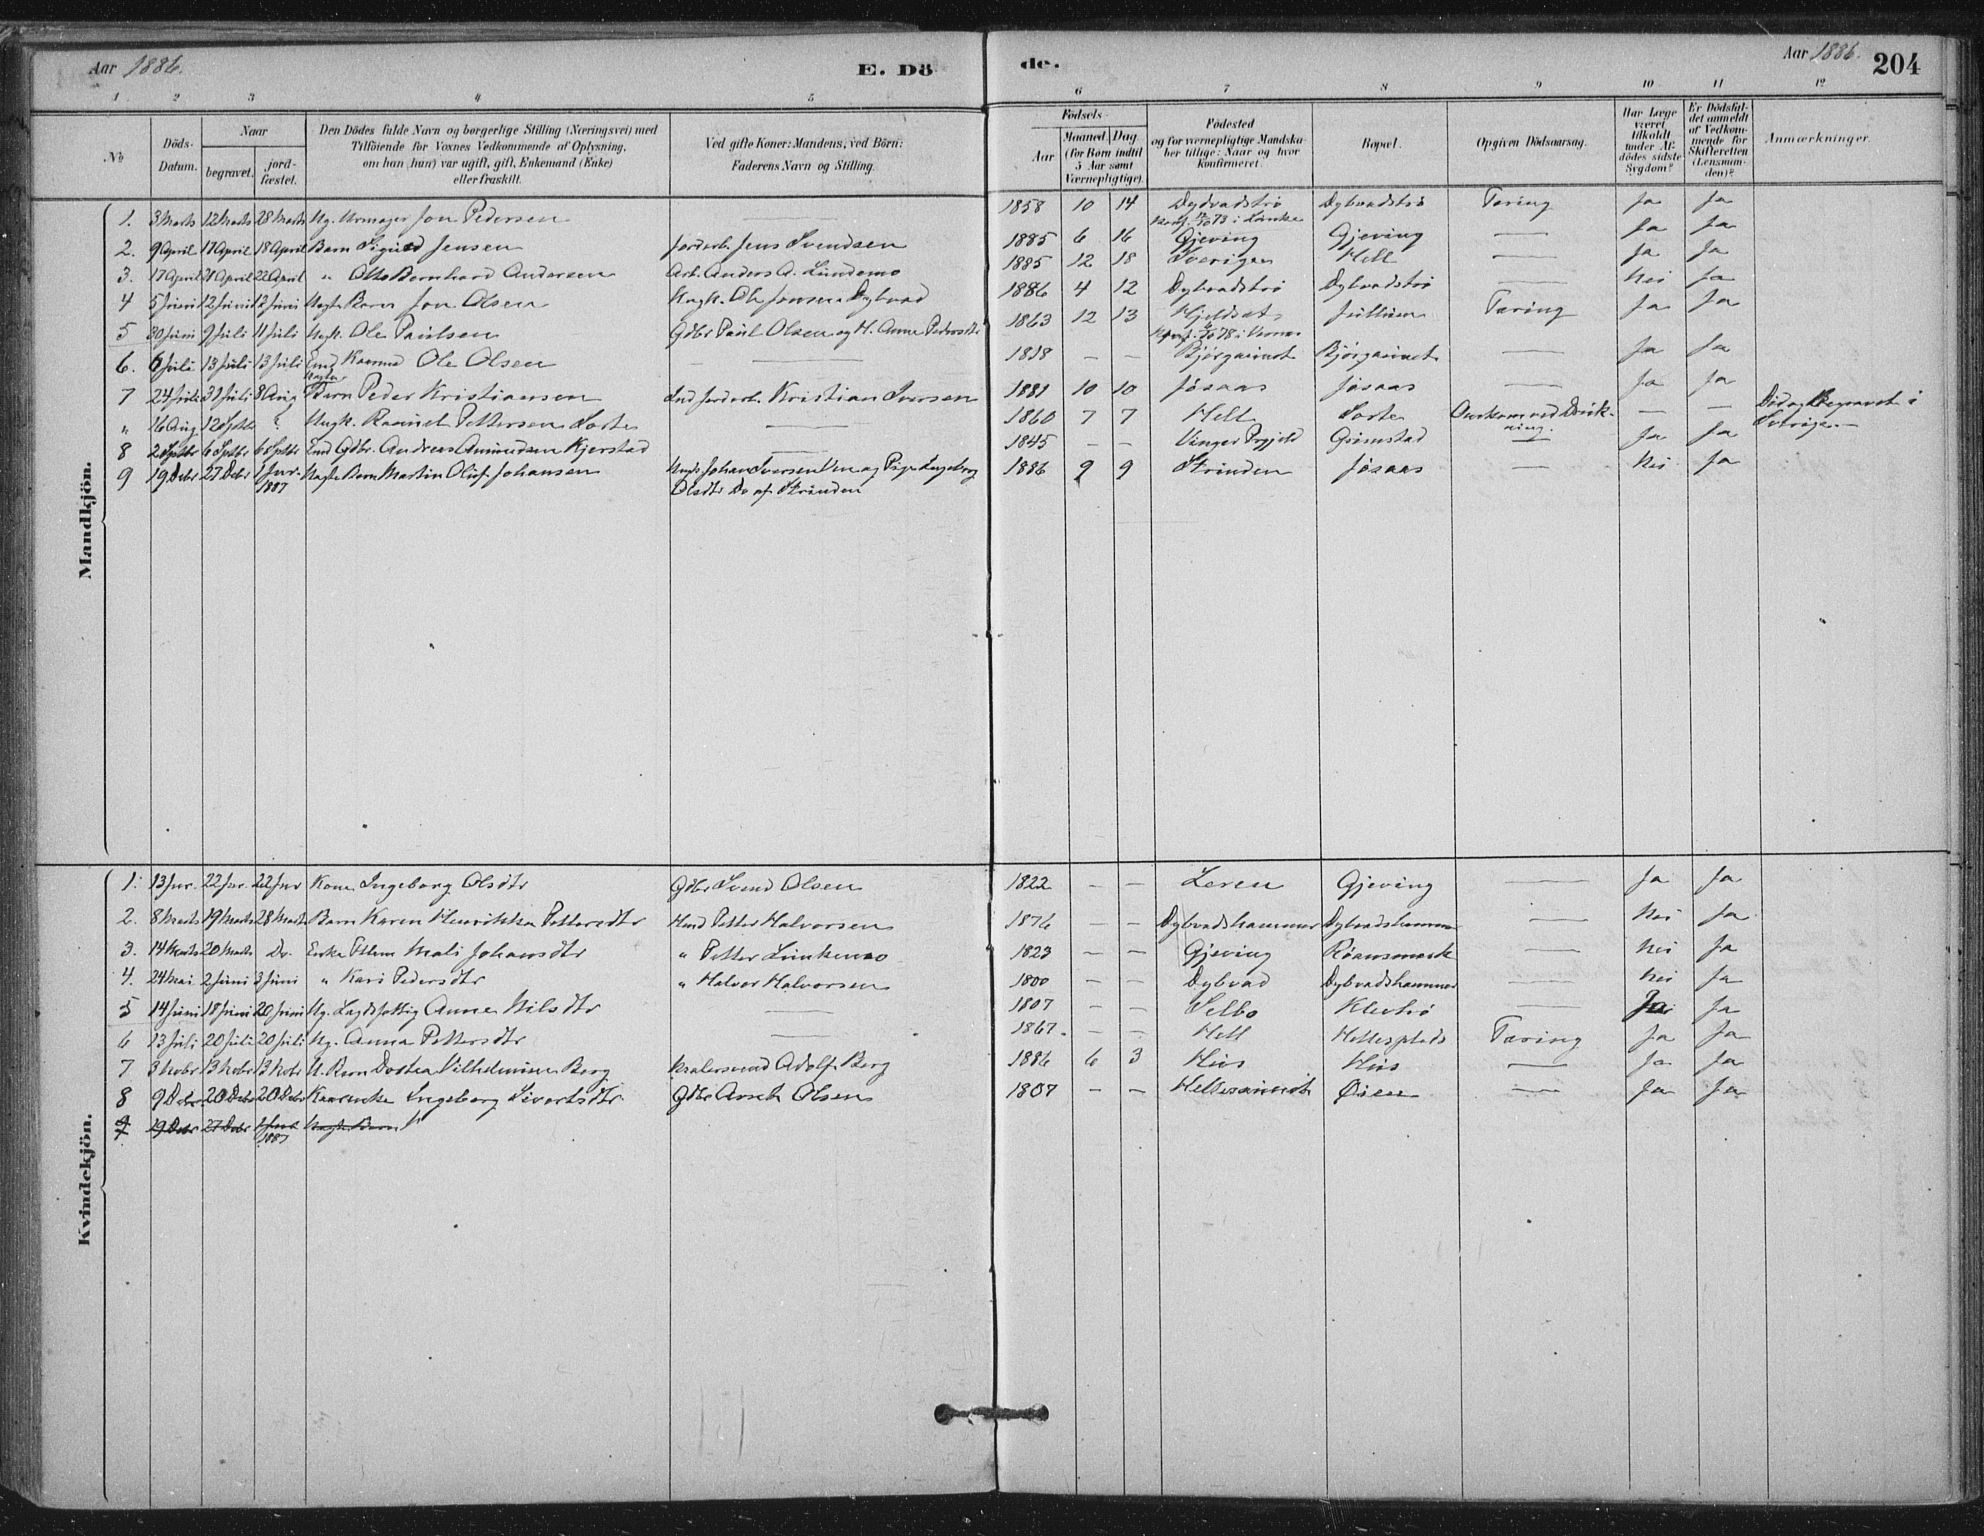 Aar 1886. E. Dö de. Aar 1886. 204
1 2 3 4 5 6 7 8 9 10 11 12
No
Döds-Datum.
Naar
begravet. jord-fæstet.
Den Dödes fulde Navn og borgerlige Stilling (Næringsvei) med
Tilföiende for Voxnes Vedkommende af Oplysning,
om han (hun) var ugift, gift, Enkemand (Enke)
eller fraskilt.
Ved gifte Koner: Mandens, ved Börn:
Faderens Navn og Stilling.
Födsels-
Aar Maaned. Dag.
(for Børn indtil
5 Aar samt
Værnepligtige).
Födested
og for værnepligtige Mandska-
ber tillige: Naar og hvor
konfirmeret.
Bopæl.
Opgiven Dödsaarsag.
Har Læge
været
tilkaldt
under Af-
dödes sidste
Sygdom?
Er Dödsfal-
det anmeldt
af Vedkom-
mende for
Skifteretten
(Lensman-
den)?
Anmærkninger.
Mandkjön.
1. 3 Marts 12 Marts 28 Marts Ug. Urmager Jon Pedersen — 1858 10 14 Dybvadstrø Dybvadstrø Tæring Ja Ja
Konf. 12/10 73 i Lånke
2. 9 April 17 April 18 April Barn Sigurd Jensen Jorderb. Jens Svendsen 1885 6 16 Gjeving Gjeving — Ja Ja
3. 17 April 21 April 22 April " Otto Bernhard Andersen Arb. Anders A. Lundemo 1885 12 18 Sverige Hell — Ja Ja
4 5 Juni 12 Juni 12 Juni Uægte Barn Jon Olsen Ungk. Ole Jensen Dybvad 1886 4 12 Dybvadstrø Dybvadstrø — Nei Ja
5 30 Juni 9 Juli 11 Juli Ungk. Ole Paulsen Gdbr Paul Olsen og H. Anne Pedersdtr 1863 12 13 Tæring Ja Ja
6. 6 Juli 13 Juli 13 Juli Ole Olsen — 1818 — — — Ja Ja
7 24 Juli 31 Juli 8 Aug Uægte Barn Peder Kristiansen Ind jorderb. Kristian Iversen 1881 10 10 Jøsaas Jøsaas — Ja Ja
" 16 Aug 12 Sptbr ? Ungk. Pettersen Sorte — 1860 7 7 Hell Sorte Omkom ved Druk-
ning. — — Død og Begravet i
Sverige.—
8 2 Sptbr 6 Sptbr 6 Sptbr Ind Gdbr. Andreas Amundsen Kjerstad — 1845 — — Vinger Prgjeld Grimstad — Ja Ja
9 19 Debr 27 Debr 1 Jnr. 1887 Uægte Barn Martin Oluf Johansen Ungk. Johan Iversen og Pige Ingeborg
Olsdtr Do af Strinden 1886 9 9 Strinden Jøsaas — Nei Ja
Kvindekjön.
1. 13 Jnr. 22 Jnr. 22 Jnr Kone Ingeborg Olsdtr Gdbr Svend Olsen 1822 — — Leren Gjeving — Ja Ja
2. 8 Marts 19 Marts 28 Marts Barn Karen Henrikka Pettersdtr Petter Halvorsen 1876 — — Dybvadshammer Dybvadshammer — Nei Ja
3. 14 Marts 20 Marts Do. Enke Mali Johansdtr " Petter 1823 — — Gjeving — Nei Ja
4. 24 Mai 2 Juni 3 Juni " Kari Pedersdtr " Halvor Halvorsen 1800 — — Dybvad Dybvadshammer — Nei Ja
5 14 Juni 18 Juni 20 Juni Ug. Lægdsfattig Anne Nilsdtr — 1807 — — Selbo Klevtrø — Ja Ja
6 13 Juli 20 Juli 20 Juli Ug. Anna Pettersdtr — 1867. — — Hell Hellesplads Tæring Ja Ja
7 3 Nobr 13 Nobr 13 Nobr U. Barn Dortea Vilhelmine Berg Malersvend Adolf Berg 1886 6 3 Hus Hus — Ja Ja
8 9 Debr 20 Debr 20 Debr Kaarenke Ingeborg Sivertsdtr Gdbr Olsen 1807 — — Hellesaunet Øien — Ja Ja
9 19 Debr 27 Debr 1 Jnr 1887 Uægte Barn